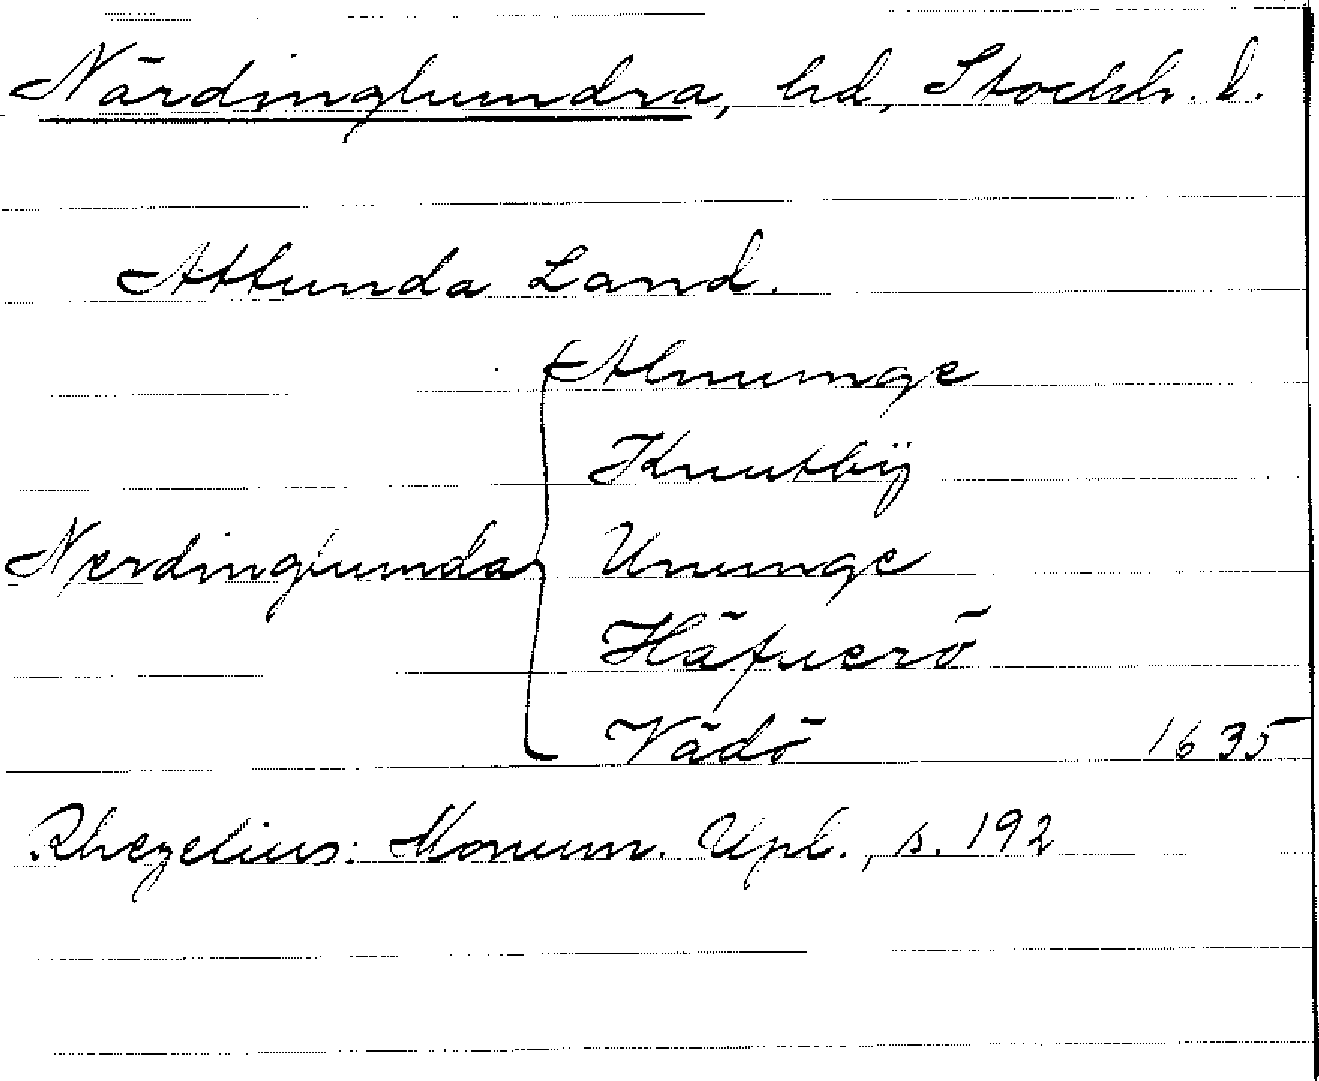 Närdinghundra, hd, Stockh. l.
Attunda Land.
Alnunge
Knutbÿ
Nerdinghunda Ununge
Häfuerö
Vädö 1635
Rhezelius: Monum. Upl., s. 192